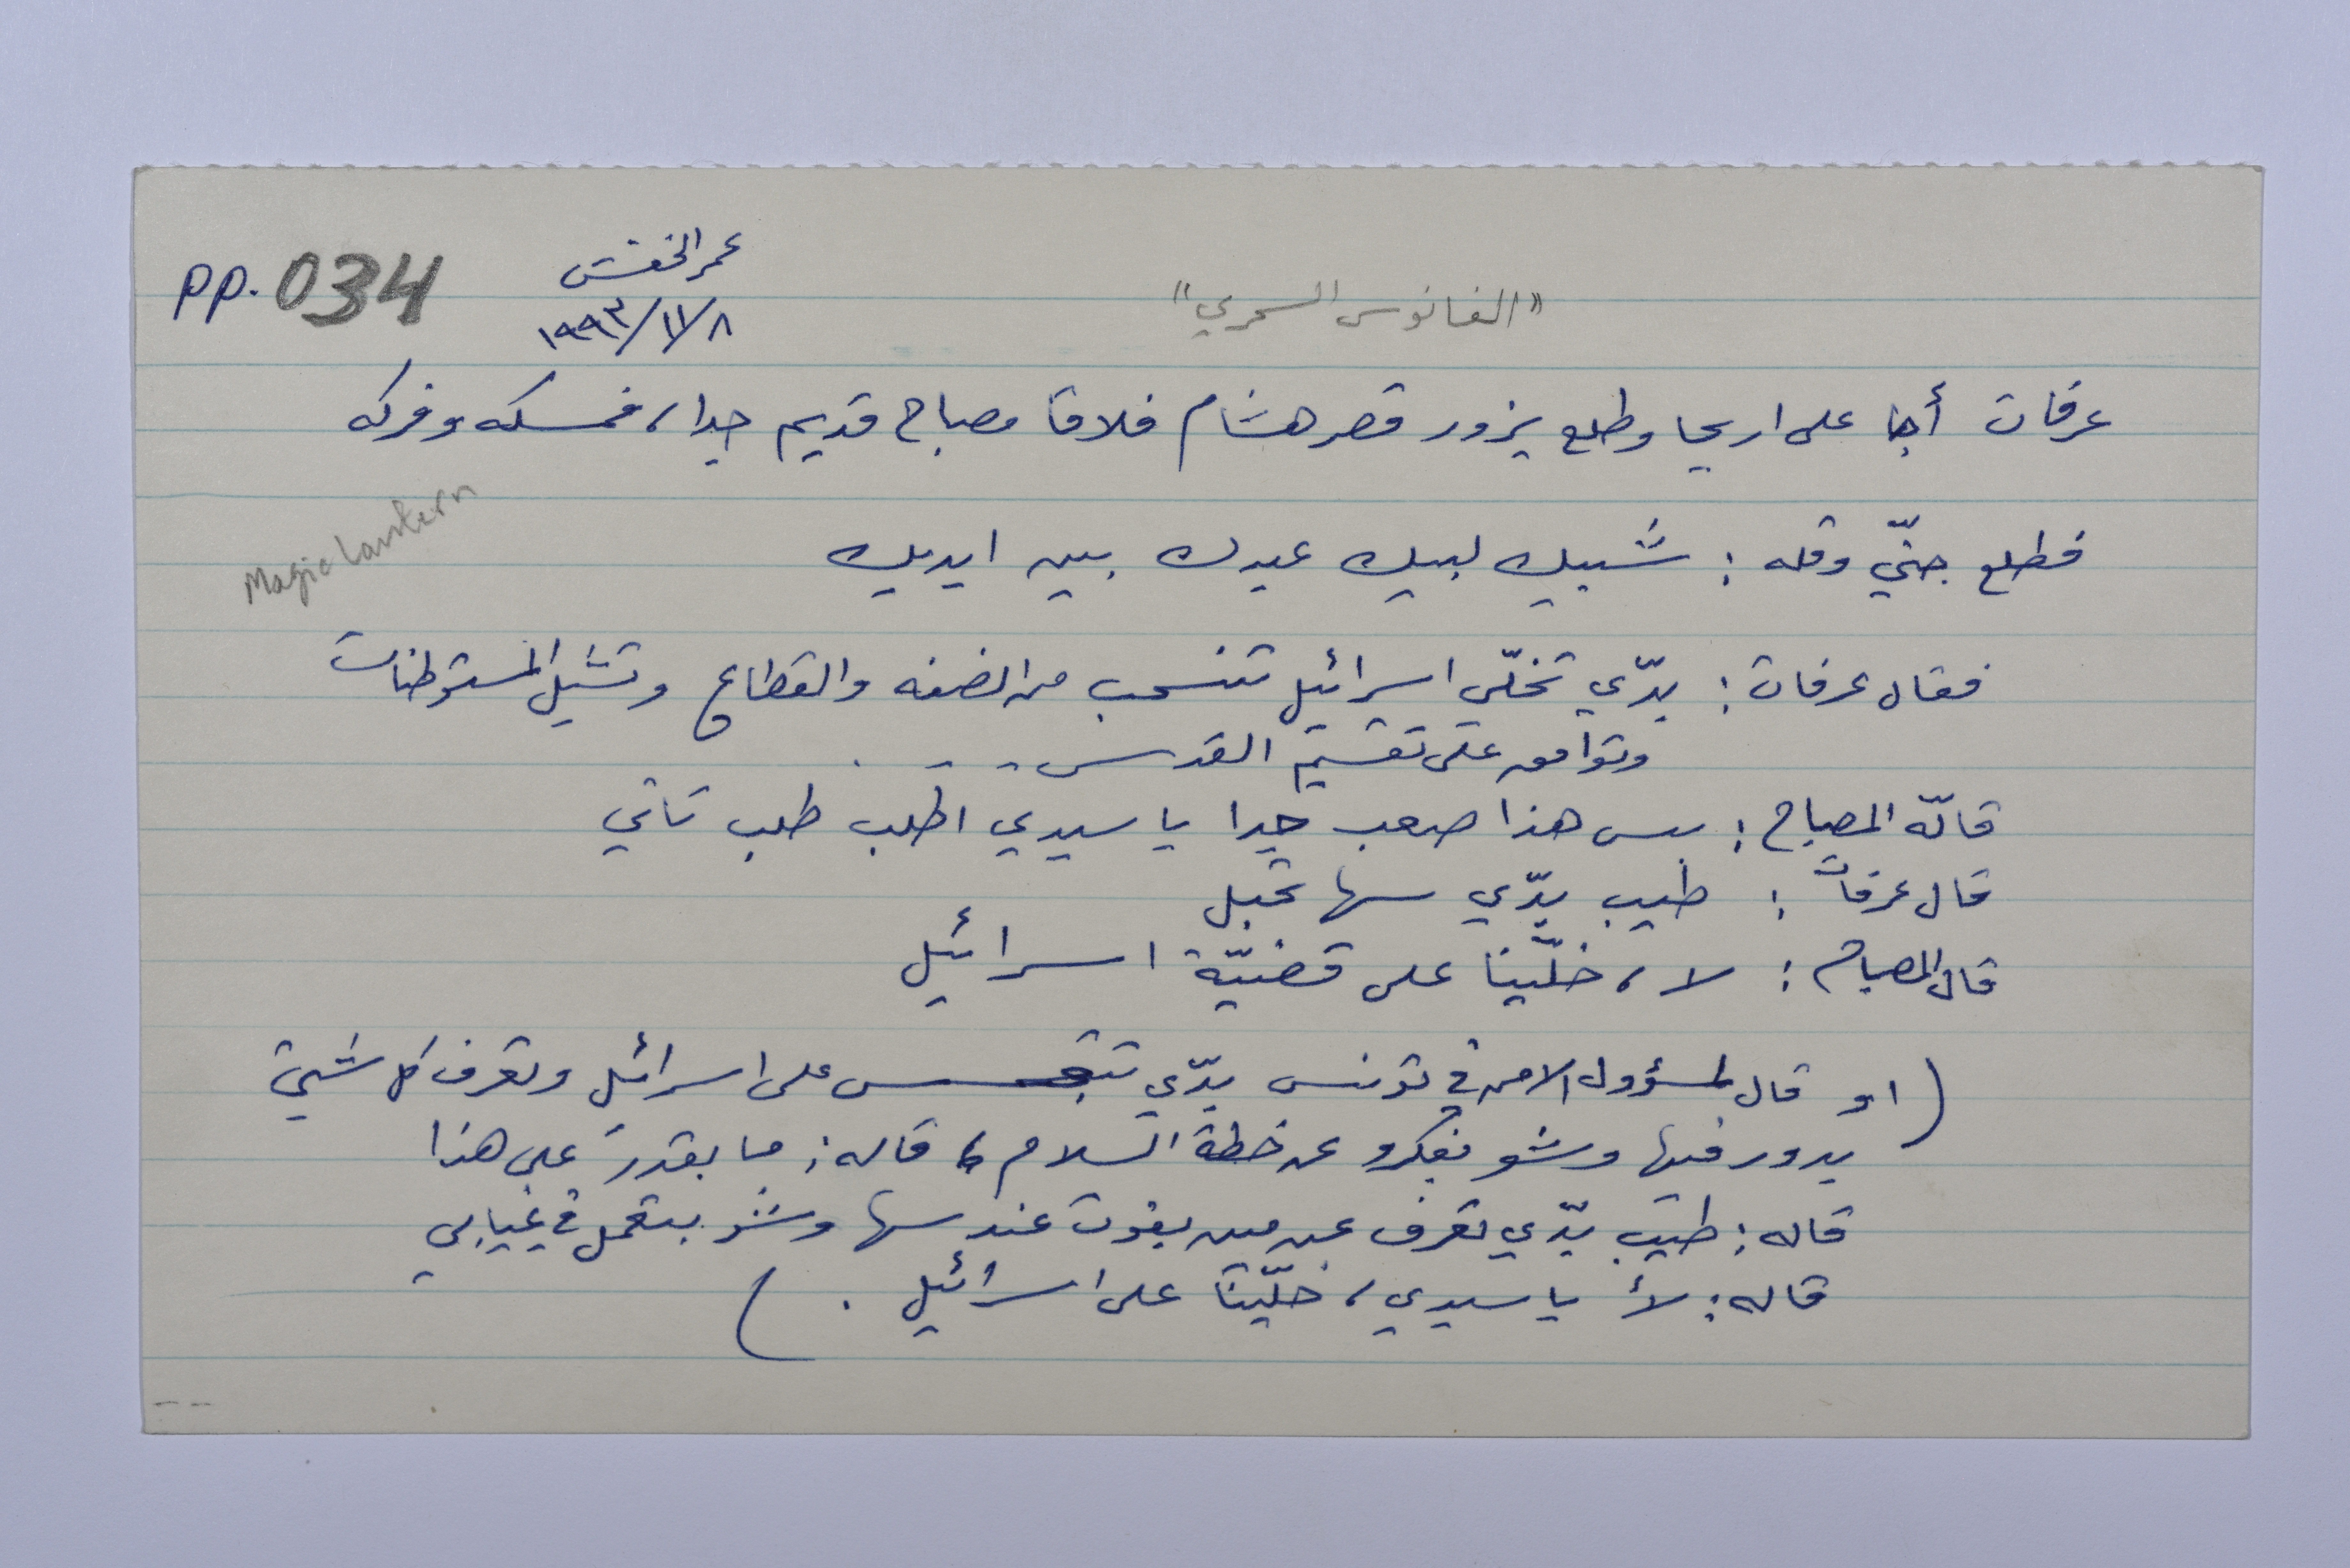 pp. 034
عمر الخفش
١٩٩٣/١١/٨
"الفانوس السحري"
Magic Lantern
عرفات أجا على اريحا وطلع يزور قصر هشام فلاقا مصباح قديم جدا، فمسكه وفركه
فطلع جنّي وقله : شبيك لبيك عبدك بين ايديك
فقال عرفات : بدّي تخلّي اسرائيل تنسحب من الضفه والقطاع وتشيل المستوطنات
وتوافق على تقسيم القدس . . . .
قالّه المصباح : بس هذا صعب جدا يا سيدي اطلب طلب تاني
قال عرفات : طيب بدّي سها تحبل
قال المصباح : لا، خلّينا على قضيّة اسرائيل
( او قال لمسؤول الامن في تونس بدّي تتجسس على اسرائيل وتعرف كل شيئ
بدور فيها وشو بفكرو عن خطة السلام، قاله : ما بقدر على هذا
قاله : طيب بدّي تعرف عن مين بفوت عند سها وشو بتعمل في غيابي
قاله : لأ يا سيدي، خلّينا على اسرائيل . )